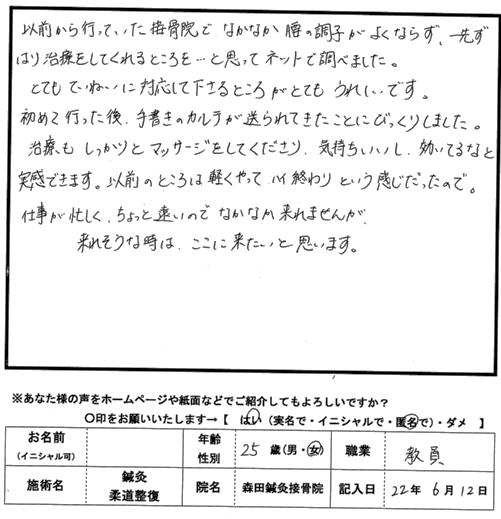 以前から行っていた接骨院でなかなか腰の調子がよくならず、一先ず
はり治療をしてくれるところを…と思ってネットで調べました。
とてもていねいに対応して下さるところがとてもうれしいです。
初めて行った後、手書きのカルテが送られてきたことにびっくりしました。
治療も しっかりとマッサージをしてくださり、気持ちいいし、効いてるなと
実感できます。以前のところは軽くやってハイ終わりという感じだったので。
仕事が忙しく、ちょっと遠いのでなかなか来れませんが、
来れそうな時は、ここに来たいと思います。
※あなた様の声をホームページや紙面などでご紹介してもよろしいですか？
〇印をお願いいたします→【 はい（実名で・イニシャルで・匿名で）・ダメ 】
お名前（イニシャル可） 年齢 性別 25 歳（男・女） 職業 教員
施術名 鍼灸 柔道整復 院名 森田鍼灸接骨院 記入日 22年 6月 12日